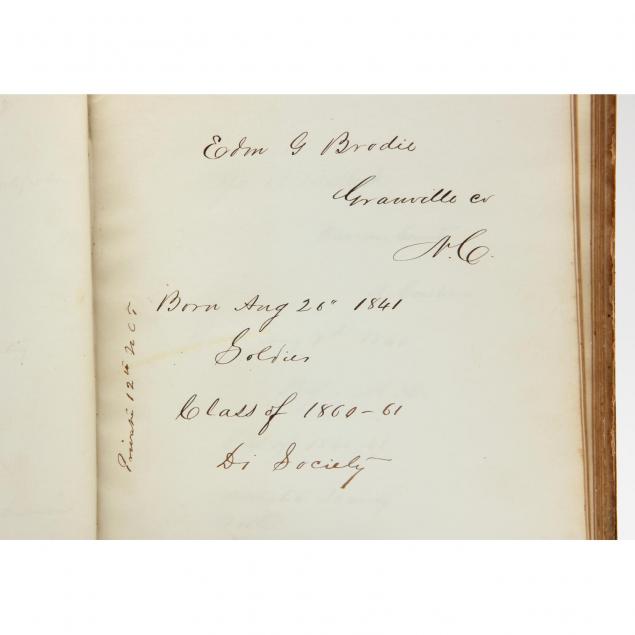 Edm G Brodie
Granville co
N.C.
Born Aug 26" 1841
Soldier
Class of 1860-61
Di Society
Private 12th N C T